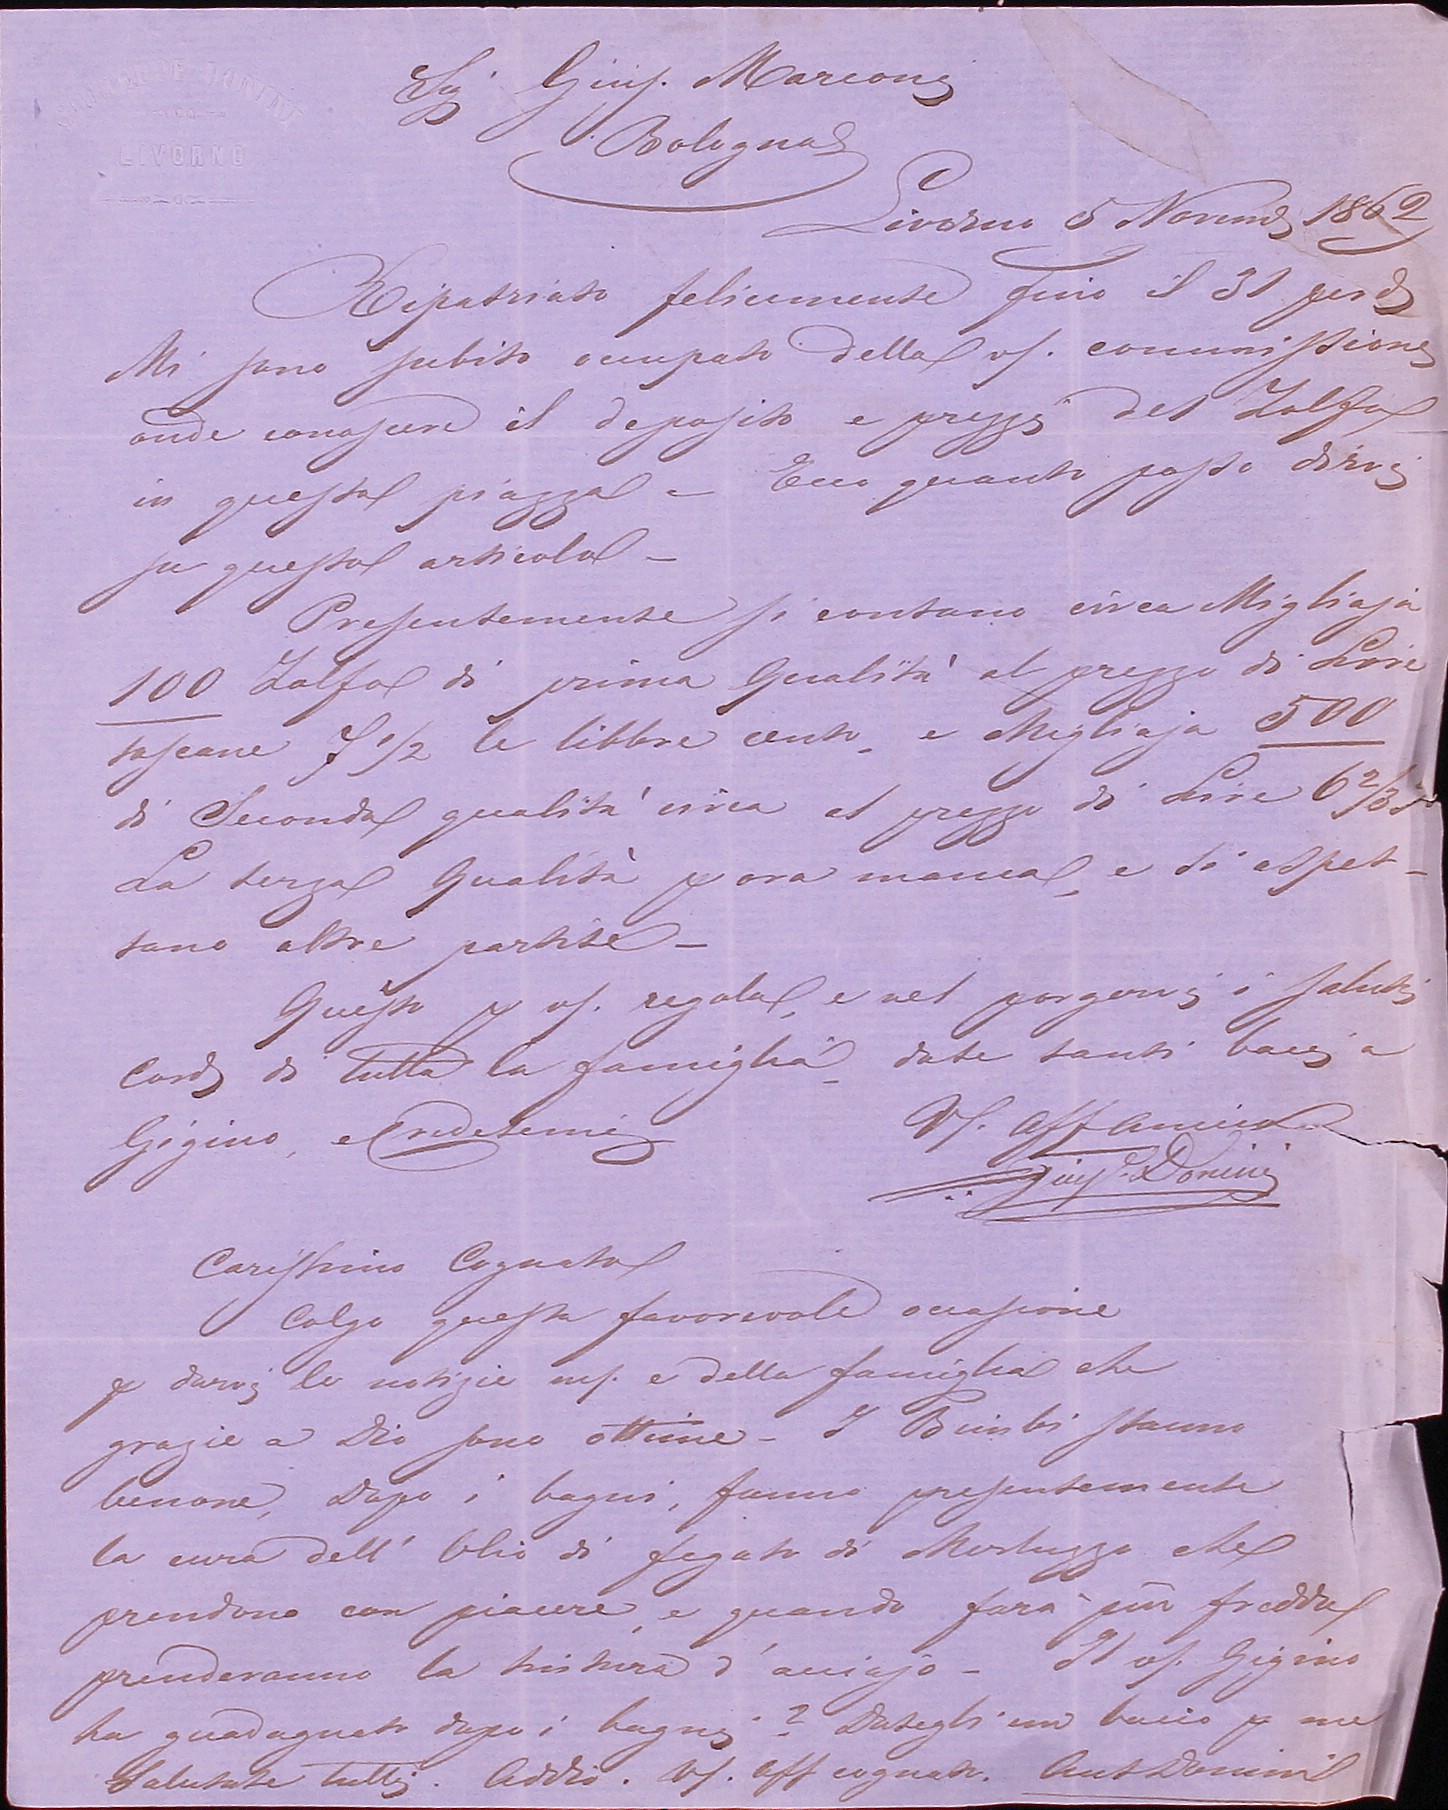 GIUSEPPE DONINI
LIVORNO
Sig Giusp. Marconi
Bologna
Livorno 5 Novemb 1862
Ripatriato felicemente fino il 31 perd
Mi sono subito occupato della vs. commissione
onde conoscere il deposito e prezzi del Zolfo
in questa piazza – Ecco quanto posso dirvi
su questo articolo –
Presentemente si contano circa Migliaja
100 Zolfo di prima Qualità al prezzo di Lire
toscane 7 1/2 le libbre cento – e Migliaja 500
di Seconda qualità circa al prezzo di Lire 6 2/3
La terza Qualità p ora manca, e si aspet-
tano altre partite –
Questo p vs. regola, e nel porgervi i saluti
Cord di tutta la famiglia – date tanti baci a
Gigino, e Credetemi
Vs. Aff Amico
Giusp. Donini
Carissimo Cognato
Colgo questa favorevole occasione
p darvi le notizie ns. e della famiglia che
grazie a Dio sono ottime – I Bimbi stanno
benone, Dopo i bagni, fanno presentemente
la cura dell' Olio di fegato di Merluzzo che
prendono con piacere, e quando farà più freddo
prenderanno la tintura d'acciajo – Il vs. Gigino
ha guadagnato dopo i bagni? Dategli un bacio p me
Salutate tutti. Addio. Vs. Aff cognato. Ant Donini